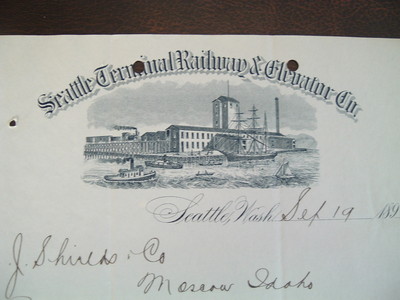 Seattle Terminal Railway & Elevator Co.
Seattle, Wash. Sep 19 189
J. Shields & Co
Moscow Idaho